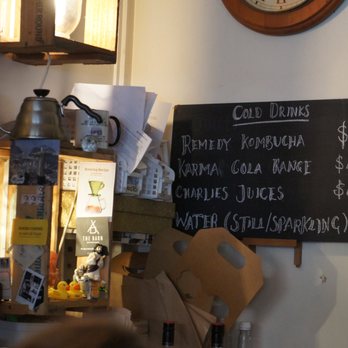 COLD DRINKS
REMEDY KOMBUCHA $
KARMA COLA RANGE $
CHARLIES JUICES $
WATER (STILL/SPARKLING)
THE BARN